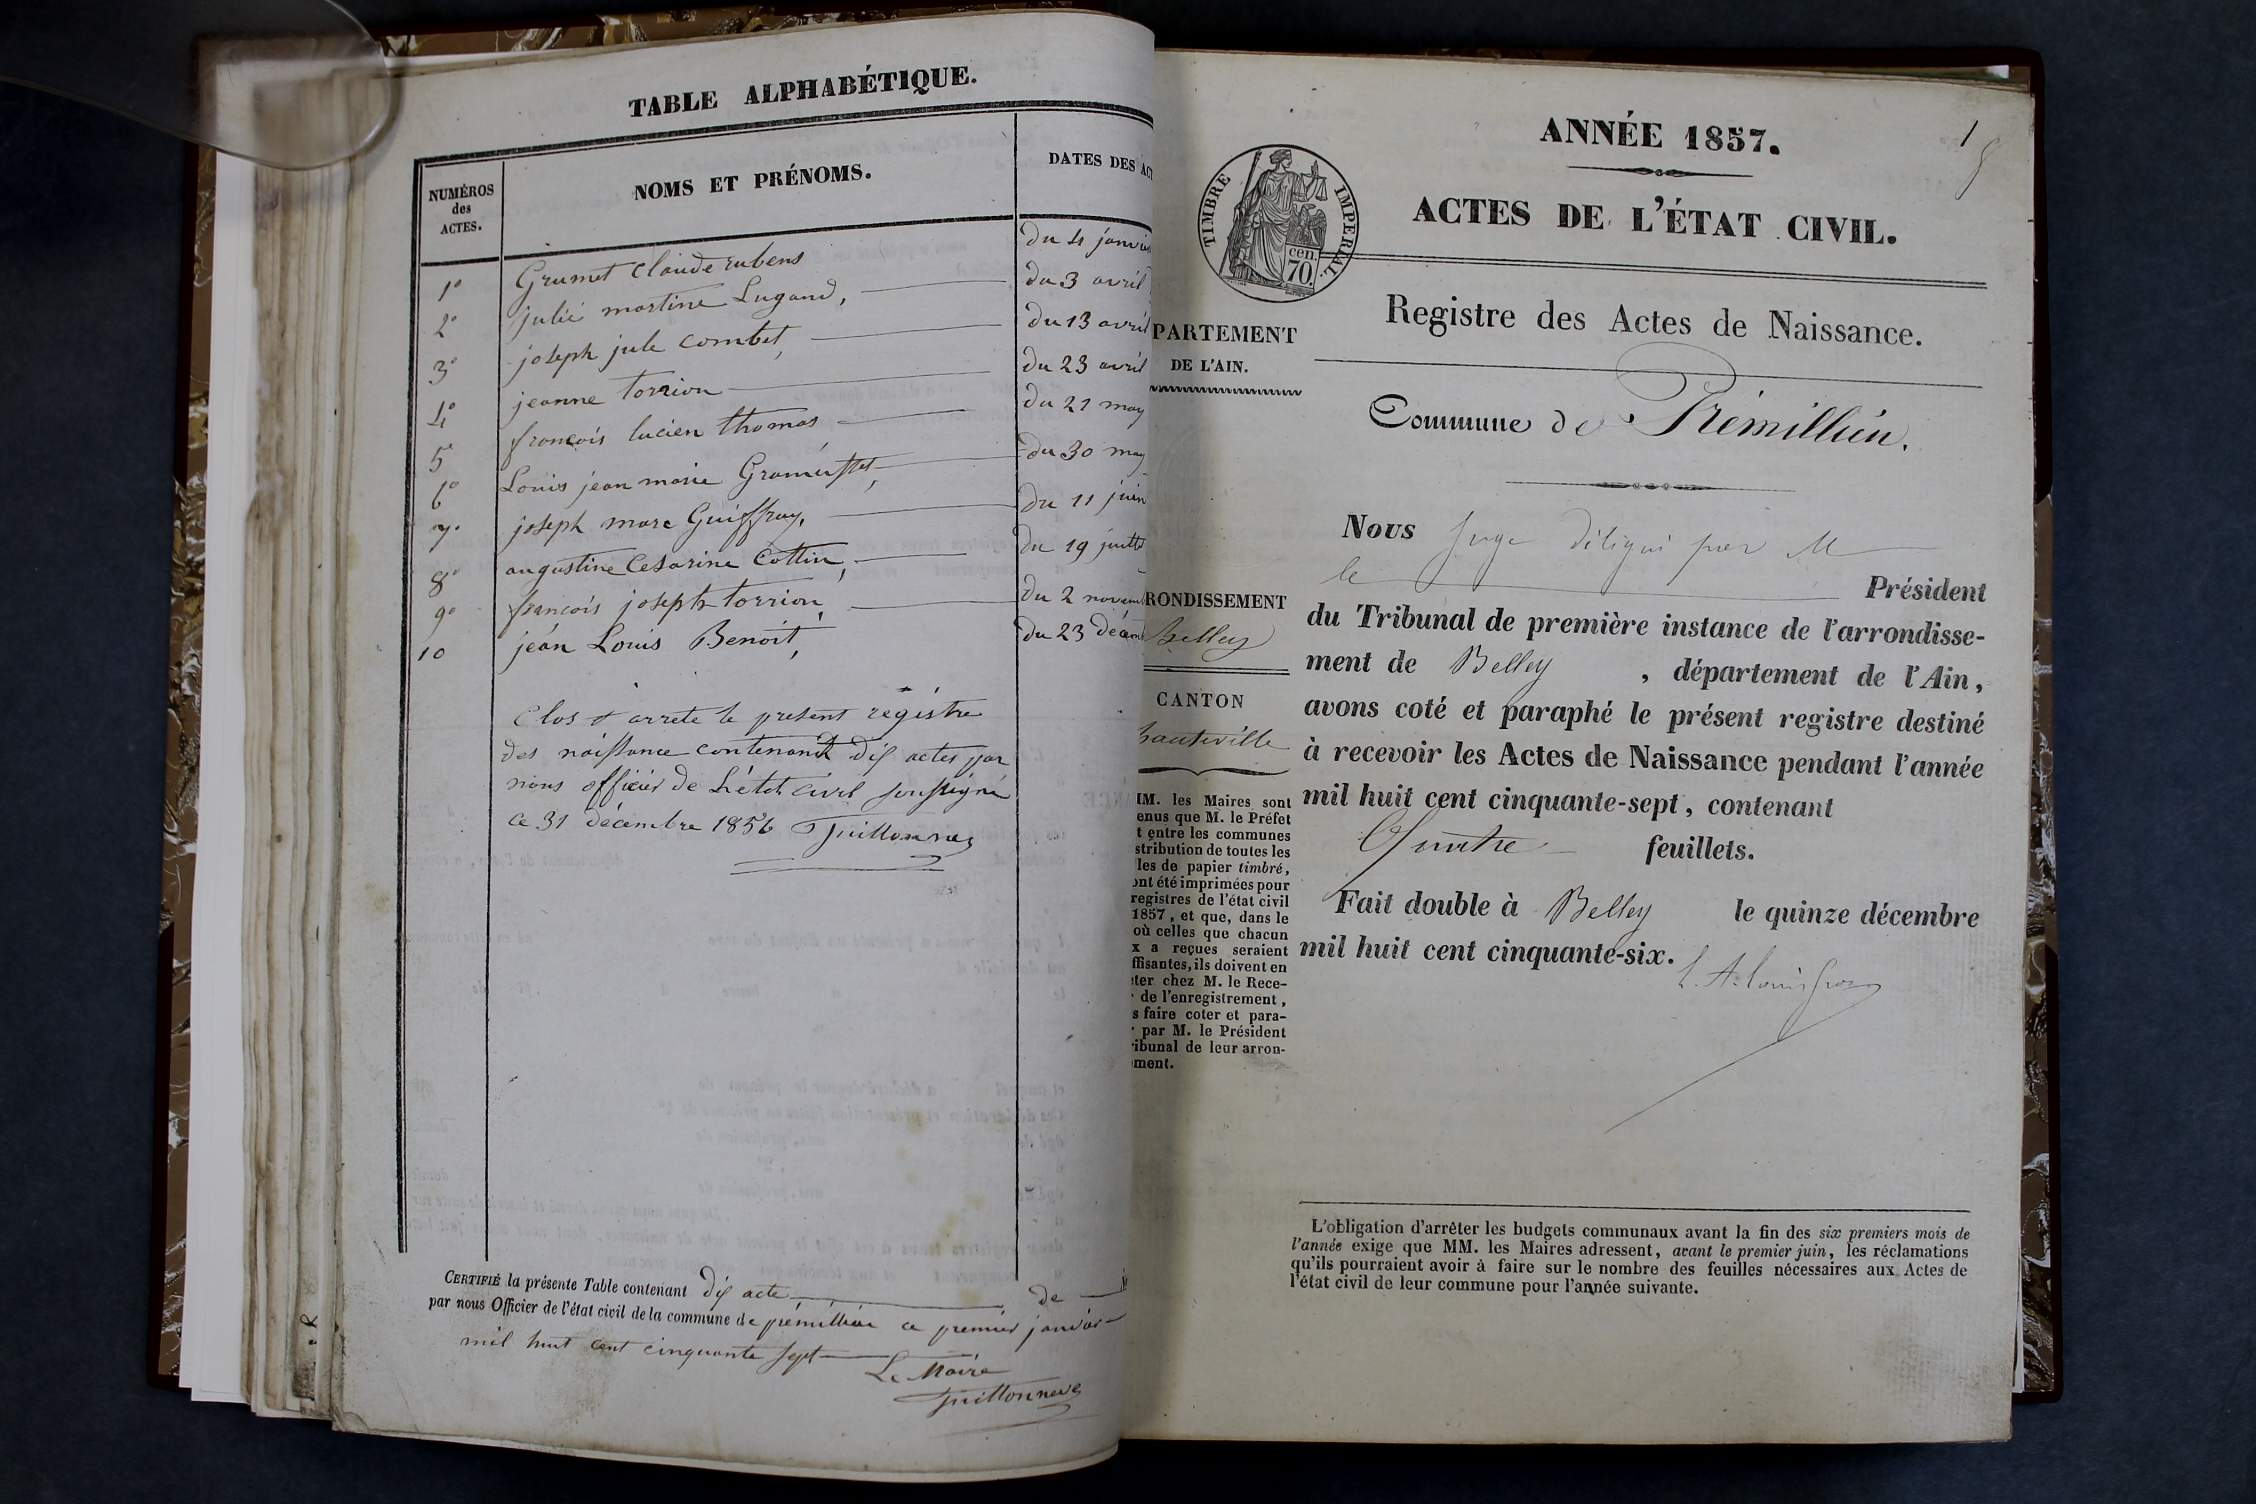 TABLE ALPHABÉTIQUE.
NUMÉROS des ACTES.
NOMS ET PRÉNOMS.
DATES DES ACT
1° Grumet claude rubens du 4 janvier
2° julie martine Lugand, du 3 avril
3° joseph jule combet, du 13 avril
4° jeanne torrion du 23 avril
5 françois lucien thomas du 21 may
6° Louis jean marie du 30 may
7° joseph marc Guiffray, du 11 juin
8° augustine Cesarine Cottin, du 19 juillet
9° francois joseph torrion, du 2 novemb
10 jean Louis Benoit, du 23 décem
Clos & arrete le present régistre
des naissance contenant dix actes par
nous officier de L'état civil soussigné
ce 31 décembre 1856
CERTIFIÉ la présente Table contenant dix acte de
par nous Officier de l'état civil de la commune de prémillieu ce premier janvier
mil huit cent cinquante sept
Le Maire
1
ANNÉE 1857.
ACTES DE L'ÉTAT CIVIL.
TIMBRE IMPERIAL.
cen. 70.
Registre des Actes de Naissance.
PARTEMENT
DE L'AIN.
Commune de Prémillieu.
RONDISSEMENT
Belley
CANTON
hauteville
IM. les Maires sont
enus que M. le Préfet
t entre les communes
stribution de toutes les
les de papier timbré,
ont été imprimées pour
registres de l'état civil
1857, et que, dans le
où celles que chacun
x a reçues seraient
ffisantes, ils doivent en
ter chez M. le Rece-
de l'enregistrement,
s faire coter et para-
par M. le Président
ribunal de leur arron-
ment.
Nous Juge délégué par M
le Président
du Tribunal de première instance de l'arrondisse-
ment de Belley, département de l'Ain,
avons coté et paraphé le présent registre destiné
à recevoir les Actes de Naissance pendant l'année
mil huit cent cinquante-sept, contenant
Quatre feuillets.
Fait double à Belley le quinze décembre
mil huit cent cinquante-six.
L'obligation d'arrêter les budgets communaux avant la fin des six premiers mois de
l'année exige que MM. les Maires adressent, avant le premier juin, les réclamations
qu'ils pourraient avoir à faire sur le nombre des feuilles nécessaires aux Actes de
l'état civil de leur commune pour l'année suivante.